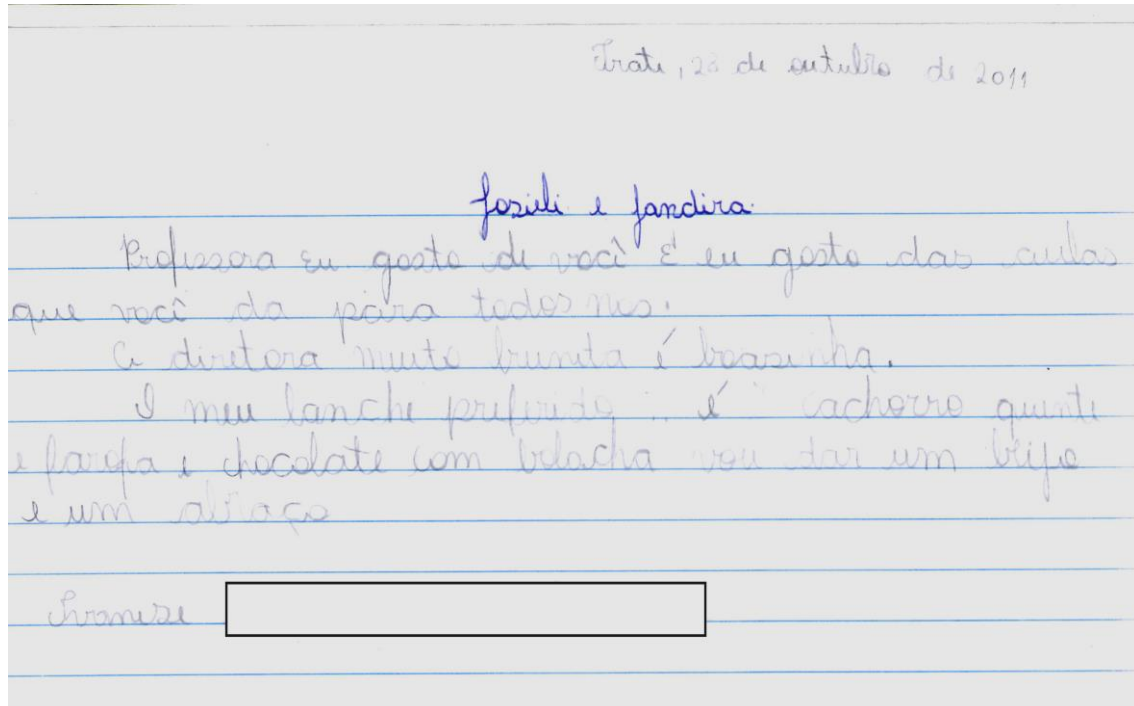 Irati, 28 de outubro de 2011
Josieli e Jandira
Professora eu gosto de você E eu gosto das aulas
que você da para todos nos.
A diretora muito brunita é boazinha.
O meu lanche preferido .. é cachorro quente
e farofa e chocolate com bolacha vou dar um beijo
e um abraço
Ivanize